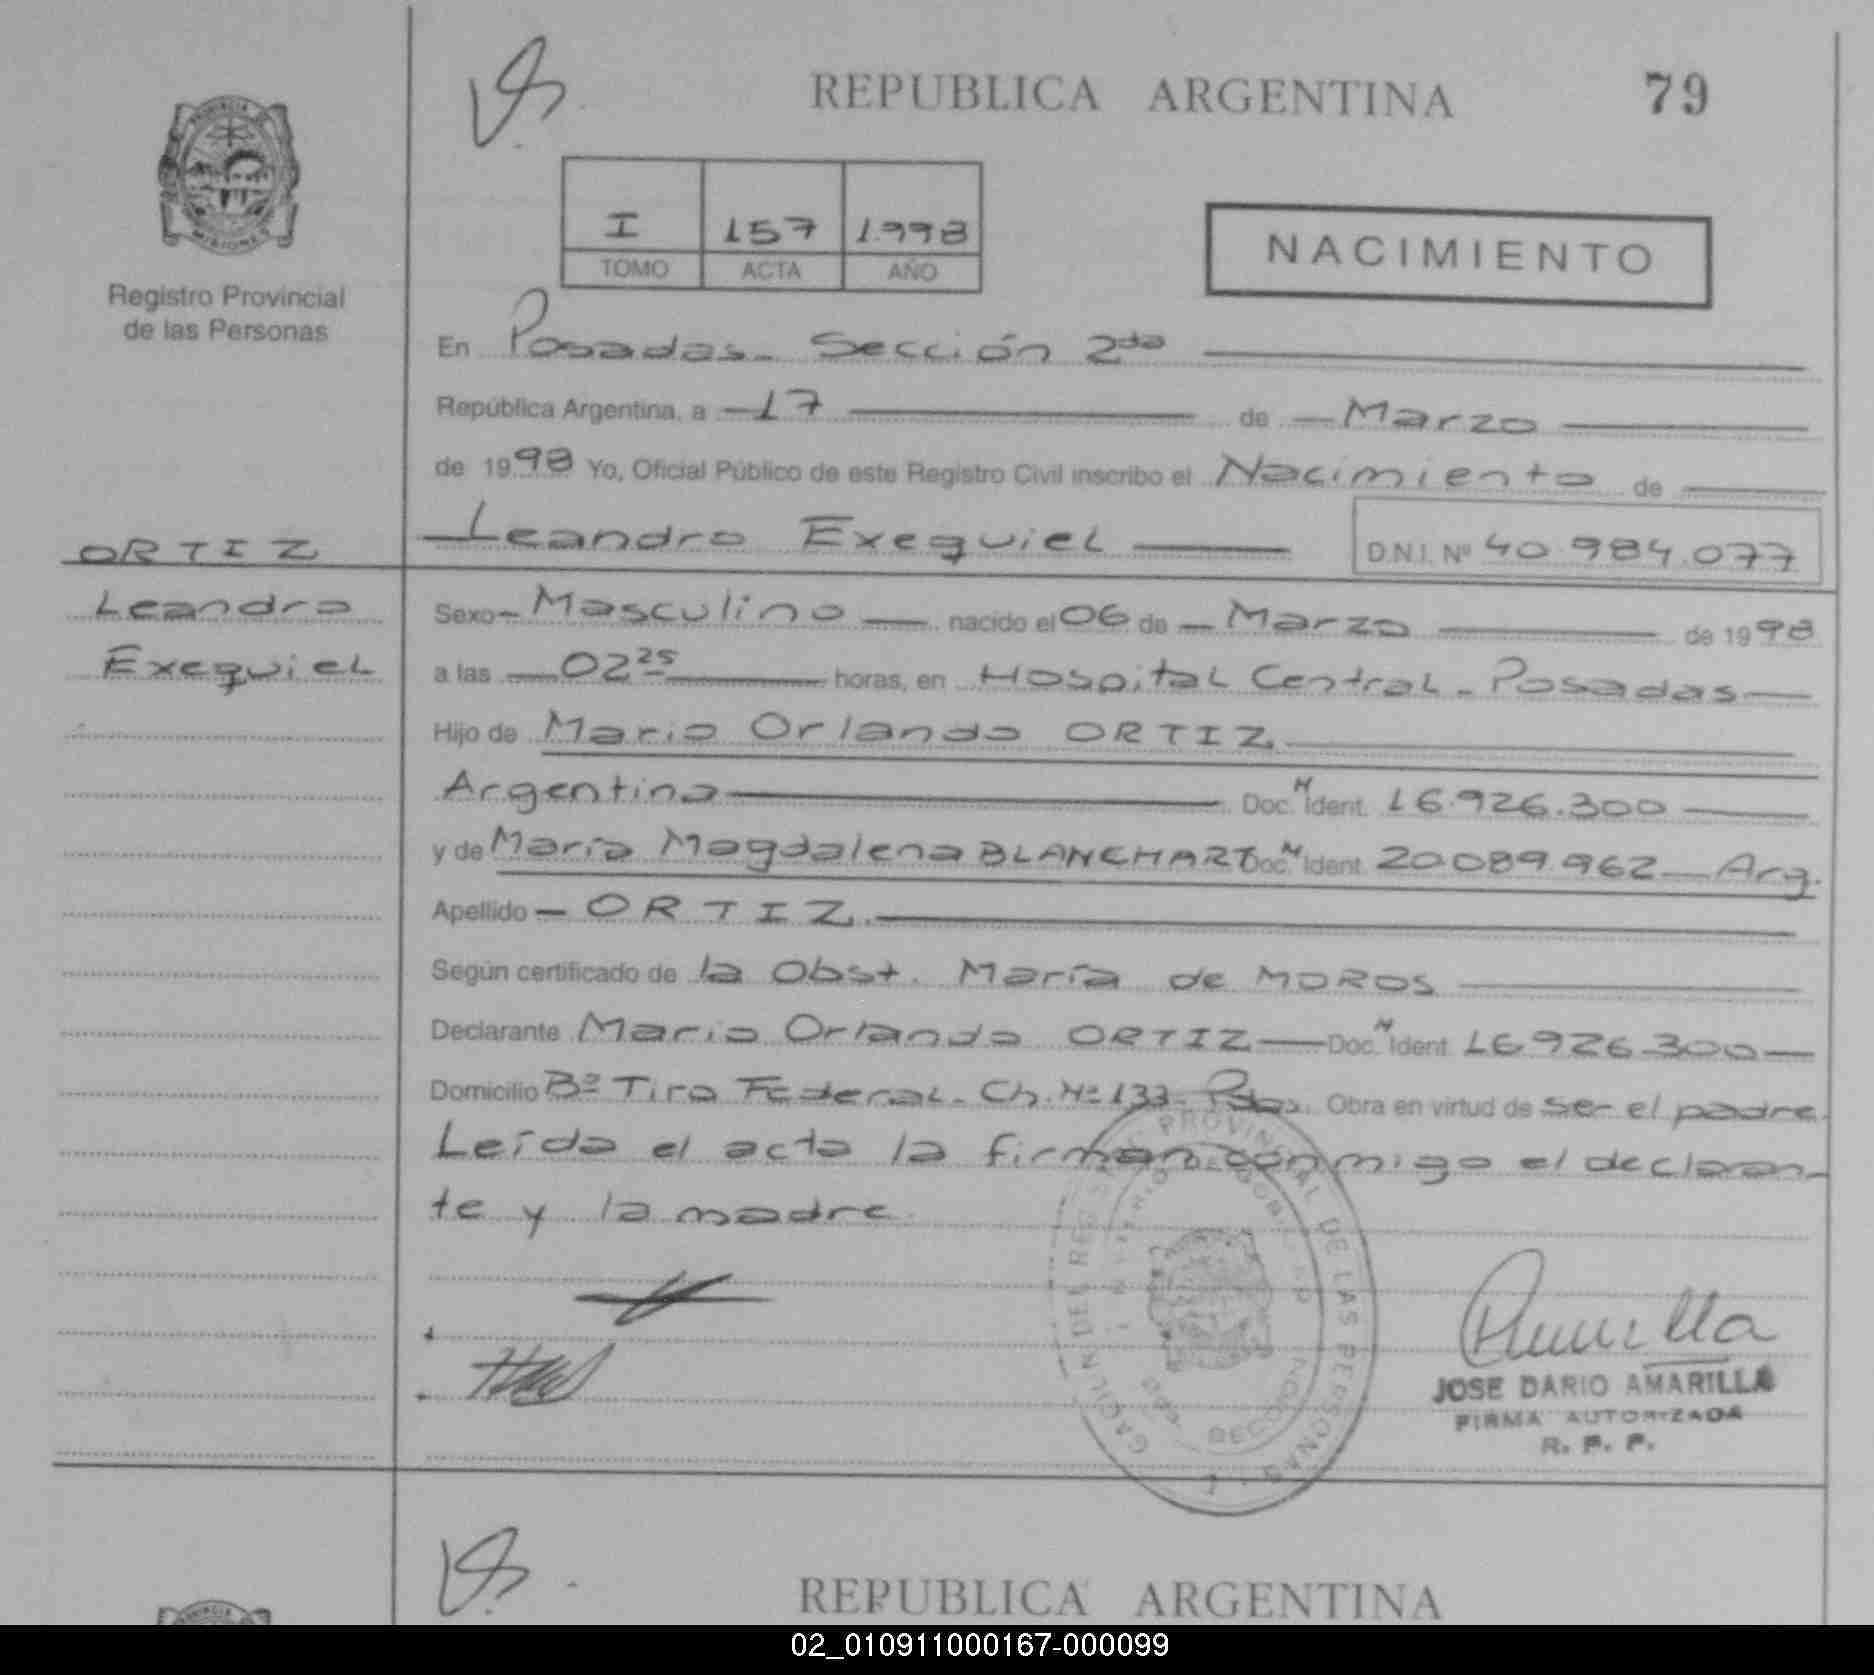 REPUBLICA ARGENTINA
79
PROVINCIA DE
MISIONES
Registro Provincial
de las Personas
I 157 1.998
TOMO ACTA AÑO
NACIMIENTO
En Posadas - Sección 2da
República Argentina, a - 17 de - Marzo
de 1998 Yo, Oficial Público de este Registro Civil inscribo el Nacimiento de
Leandro Exequiel D.N.I. Nº 40.984.077
ORTIZ
Leandro
Exequiel
Sexo - Masculino nacido el 06 de - Marzo de 1998
a las 02 25 horas, en Hospital Central - Posadas
Hijo de Mario Orlando ORTIZ
Argentino Doc. N Ident. 16.926.300
y de María Magdalena BLANCHART Doc. N Ident. 20.089.962 - Arg.
Apellido - ORTIZ
Según certificado de la Obst. María de MOROS
Declarante Mario Orlando ORTIZ Doc. N Ident. 16.926.300
Domicilio Bº Tiro Federal - Ch. Nº 133 - Pdas. Obra en virtud de ser el padre.
Leída el acta la firman conmigo el declaran-
te y la madre.
PROVINCIAL DE LAS PERSONAS
JOSE DARIO AMARILLA
FIRMA AUTORIZADA
R. P. P.
REPUBLICA ARGENTINA
02_010911000167-000099